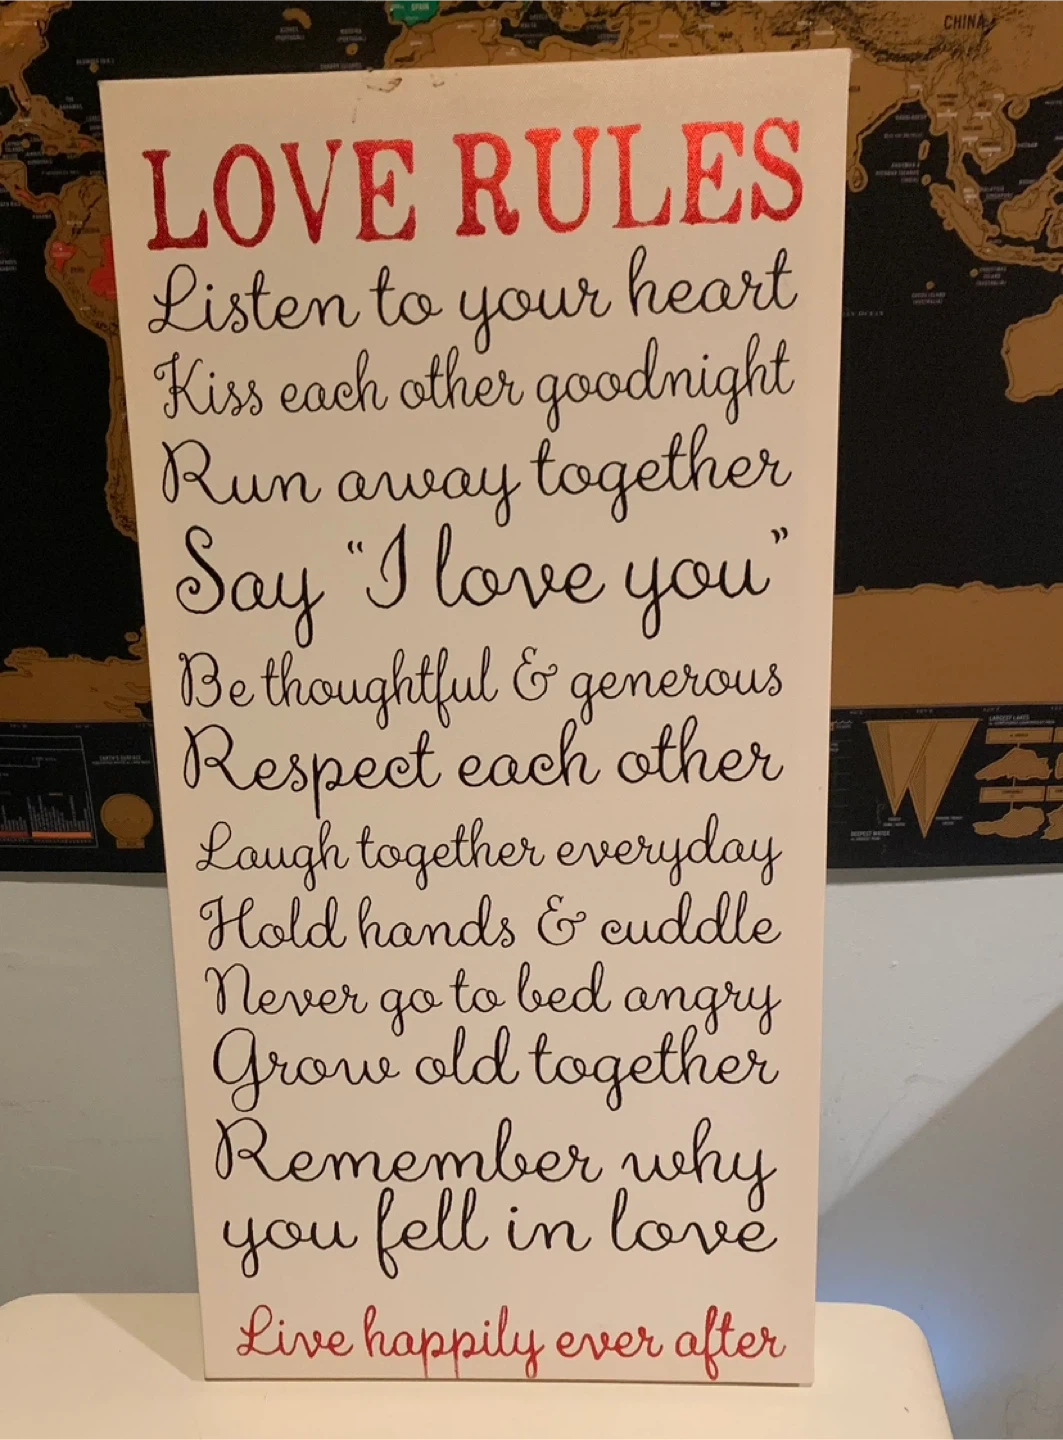 LOVE RULES
Listen to your heart
Kiss each other goodnight
Run away together
Say “I love you”
Be thoughtful & generous
Respect each other
Laugh together everyday
Hold hands & cuddle
Never go to bed angry
Grow old together
Remember why
you fell in love
Live happily ever after
CHINA
SPAIN